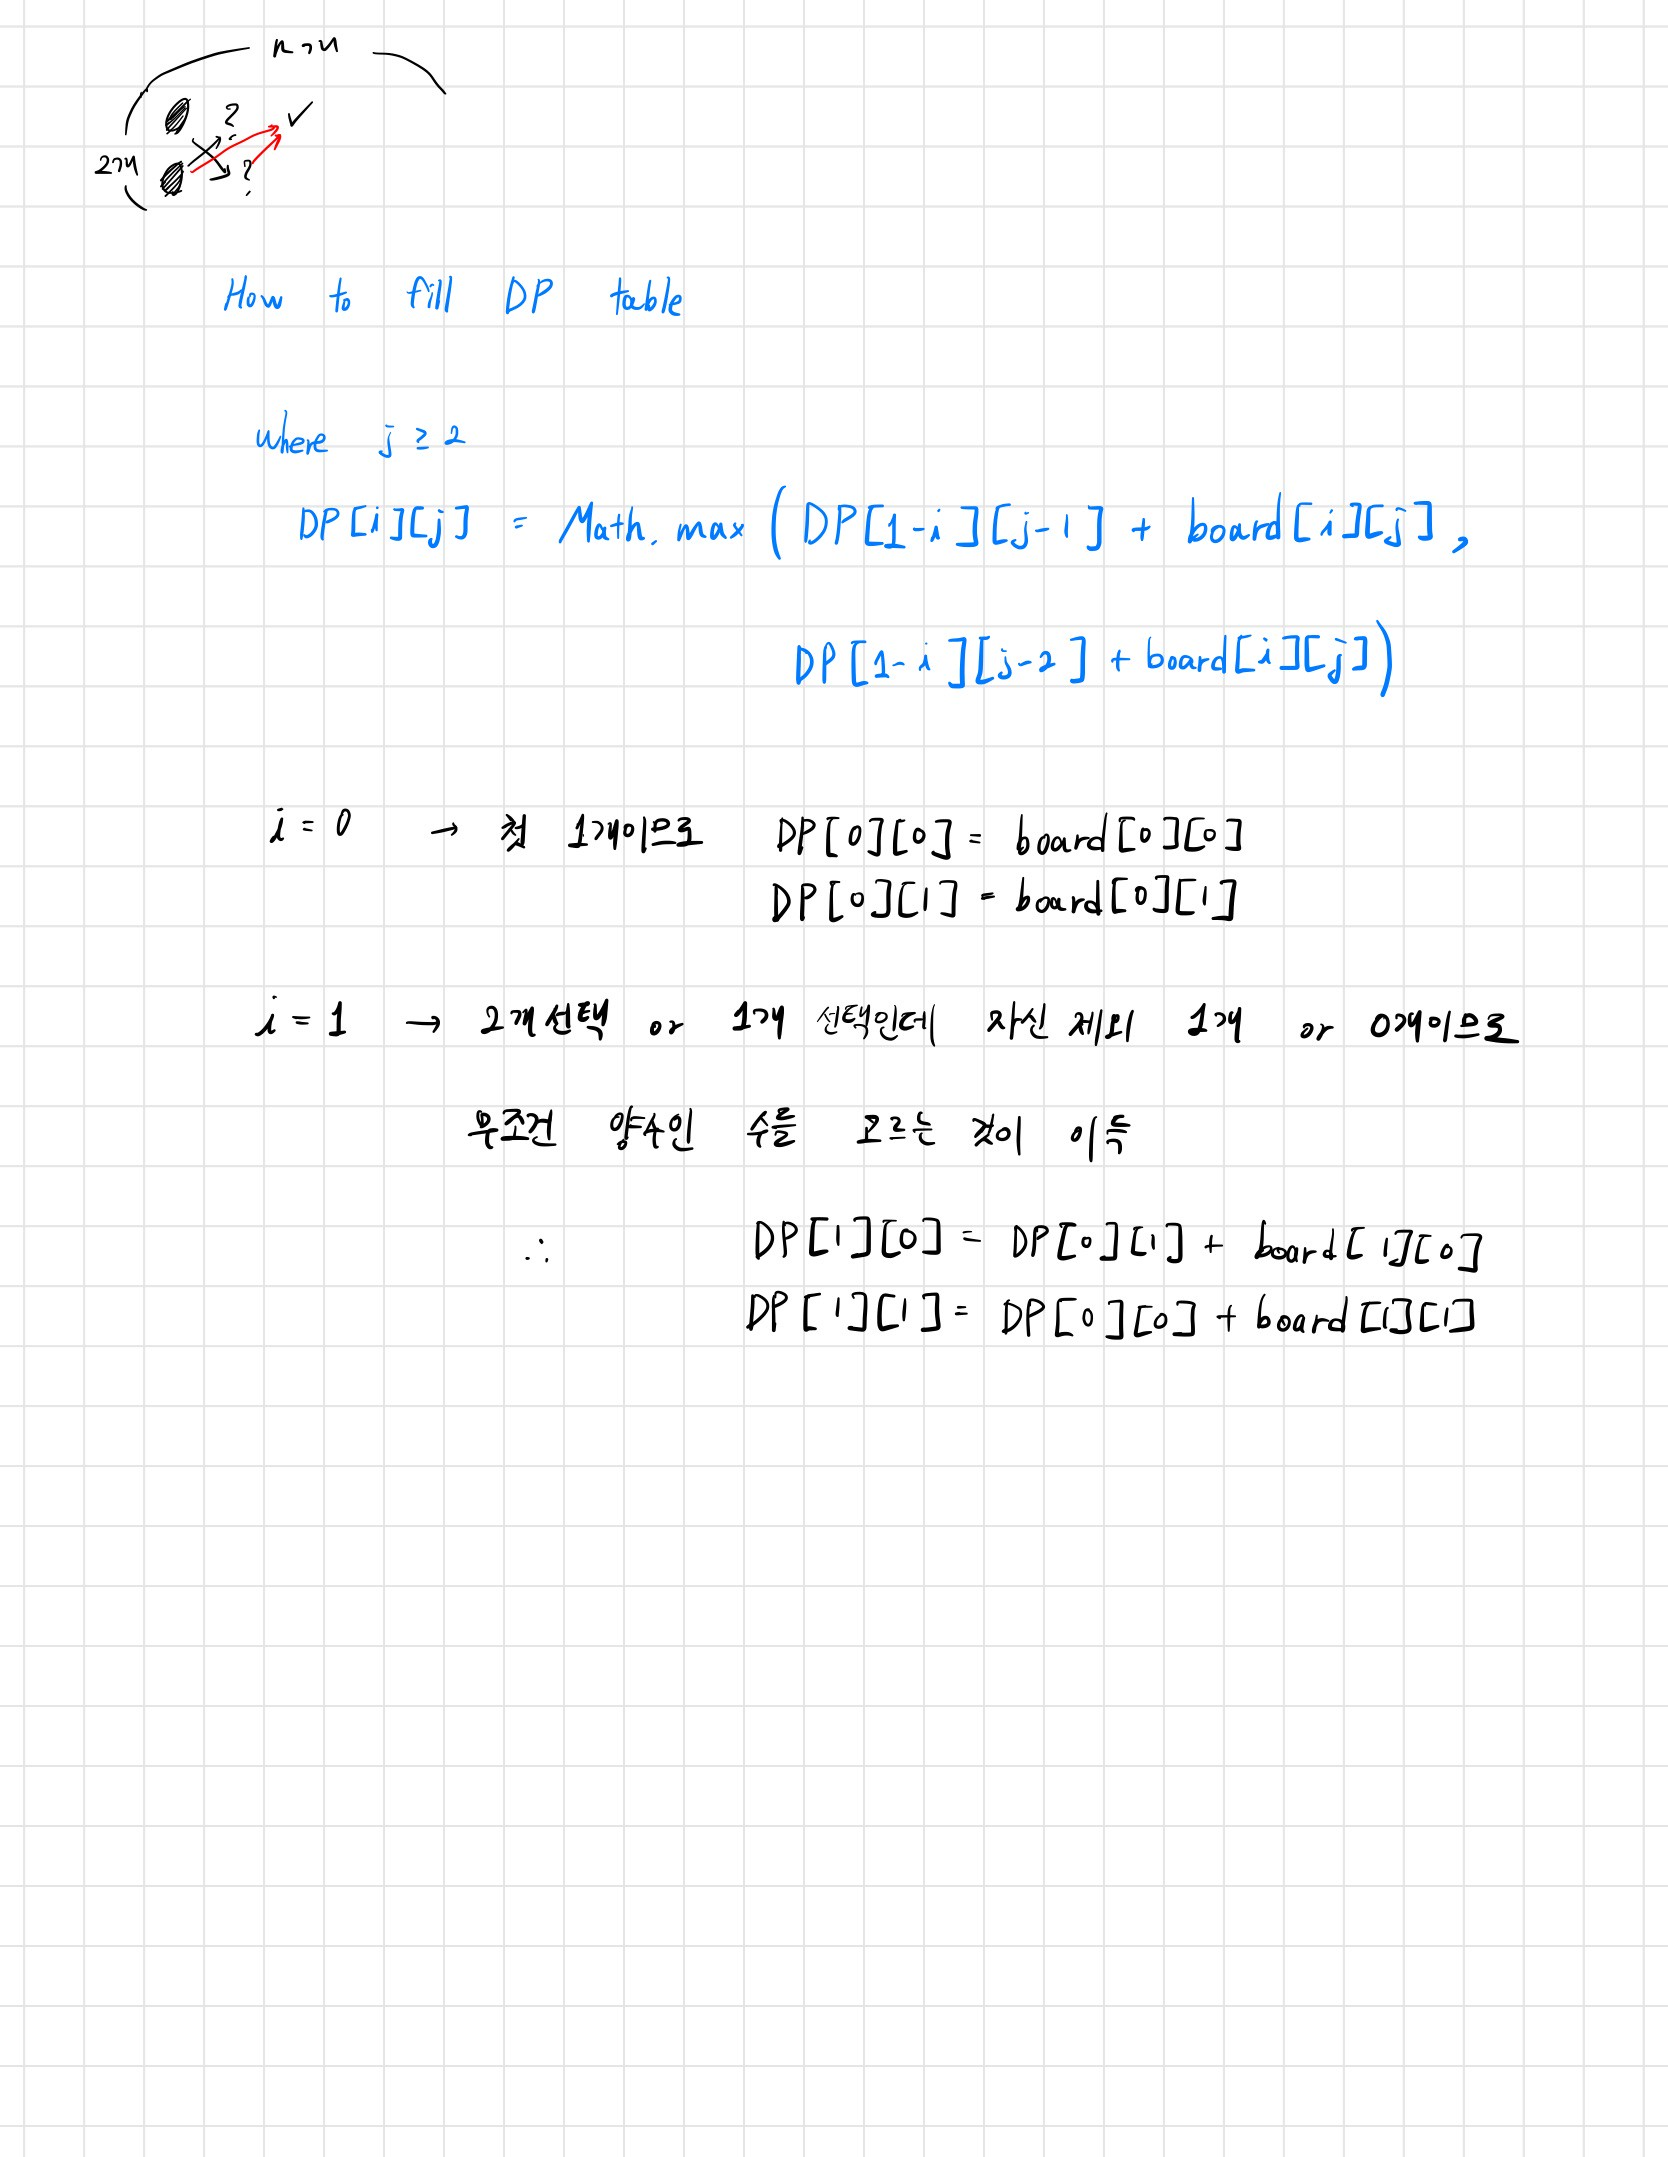 n개
? ✓
2개 ?
How to fill DP table
where j ≥ 2
DP[i][j] = Math.max(DP[1-i][j-1] + board[i][j],
DP[1-i][j-2] + board[i][j])
i = 0 → 첫 1개이므로 DP[0][0] = board[0][0]
DP[0][1] = board[0][1]
i = 1 → 2개 선택 or 1개 선택인데 자신 제외 1개 or 0개이므로
무조건 양수인 수를 고르는 것이 이득
∴ DP[1][0] = DP[0][1] + board[1][0]
DP[1][1] = DP[0][0] + board[1][1]